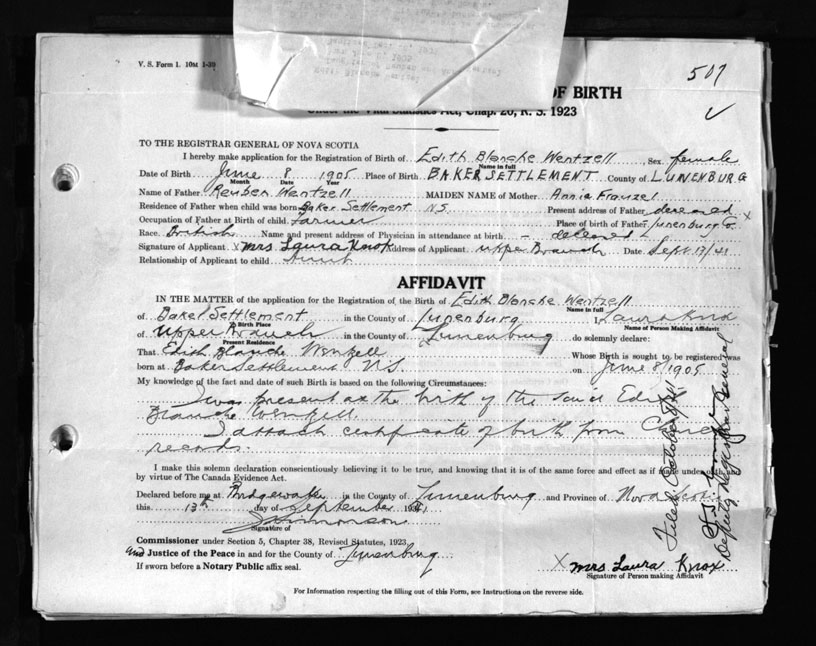 V. S. Form 1. 10M 1-39
507
OF BIRTH
Under the Vital Statistics Act, Chap. 20, R. S. 1923
TO THE REGISTRAR GENERAL OF NOVA SCOTIA
I hereby make application for the Registration of Birth of Edith Blanche Wentzell Sex female
Name in full
Date of Birth June 8 1905 Place of Birth BAKER SETTLEMENT County of LUNENBURG
Month Date Year
Name of Father Reuben Wentzell MAIDEN NAME of Mother Annie Frauzel
Residence of Father when child was born Baker Settlement NS Present address of Father deceased x
Occupation of Father at Birth of child Farmer Place of birth of Father Lunenburg Co.
Race British Name and present address of Physician in attendance at birth – deceased
Signature of Applicant x Mrs Laura Knox Address of Applicant Upper Branch Date Sept 13/41
Relationship of Applicant to child Aunt
AFFIDAVIT
IN THE MATTER of the application for the Registration, of the Birth of Edith Blanche Wentzell
Name in full
of Baker Settlement in the County of Lunenburg I, Laura Knox
Birth Place Name of Person Making Affidavit
of Upper Branch in the County of Lunenburg do solemnly declare:
Present Residence
That Edith Blanche Wentzell Whose Birth is sought to be registered was
born at Baker Settlement N.S. on June 8/1905
My knowledge of the fact and date of such Birth is based on the following Circumstances:
I was present at the birth of the said Edith
Blanche Wentzell
I attach certificate of birth from Church
records.
I make this solemn declaration conscientiously believing it to be true, and knowing that it is of the same force and effect as if made under oath and
by virtue of The Canada Evidence Act.
Declared before me at Bridgewater in the County of Lunenburg and Province of Nova Scotia
this 13th day of September 1941
Signature of
Commissioner under Section 5, Chapter 38, Revised Statutes, 1923
and Justice of the Peace in and for the County of Lunenburg
If sworn before a Notary Public affix seal.
X Mrs Laura Knox
Signature of Person making Affidavit
For Information respecting the filling out of this Form, see Instructions on the reverse side.
Filed October
Deputy Registrar General